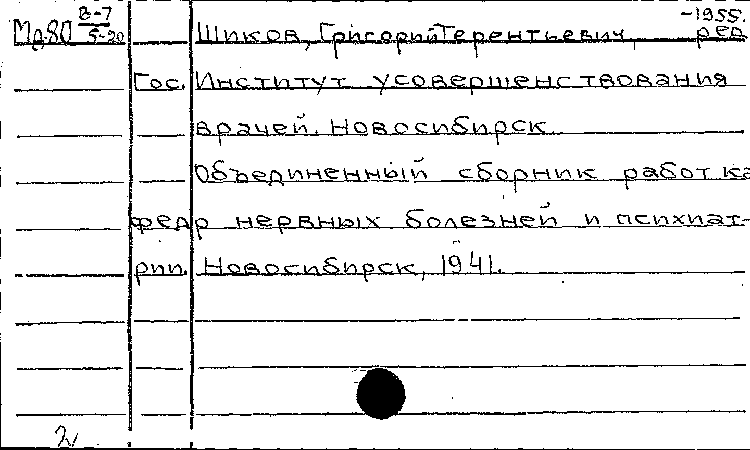 В-7 -1955.
Мд80 5-20 Шиков, Григорий Терентьевич, ред
Гос. Институт усовершенствования
врачей. Новосибирск
Объединенный сборник работ ка
федр нервных болезней и психиат-
рии. Новосибирск, 1941.
2